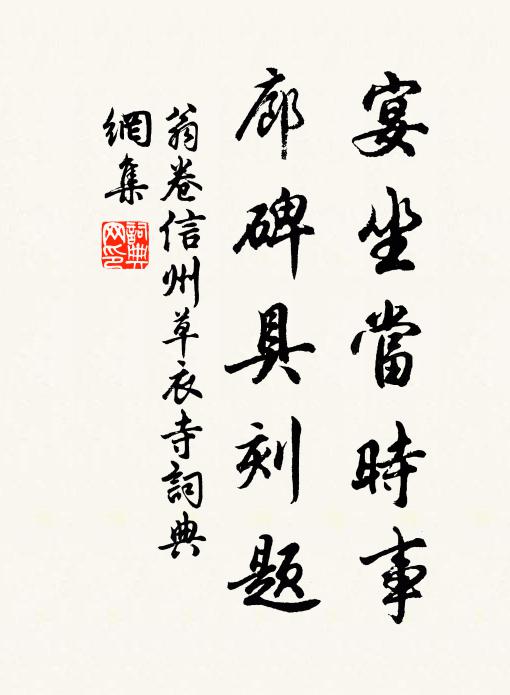 宴坐當時事
廊碑具刻題
翁卷信州草衣寺詞典
網集
詞典
网印